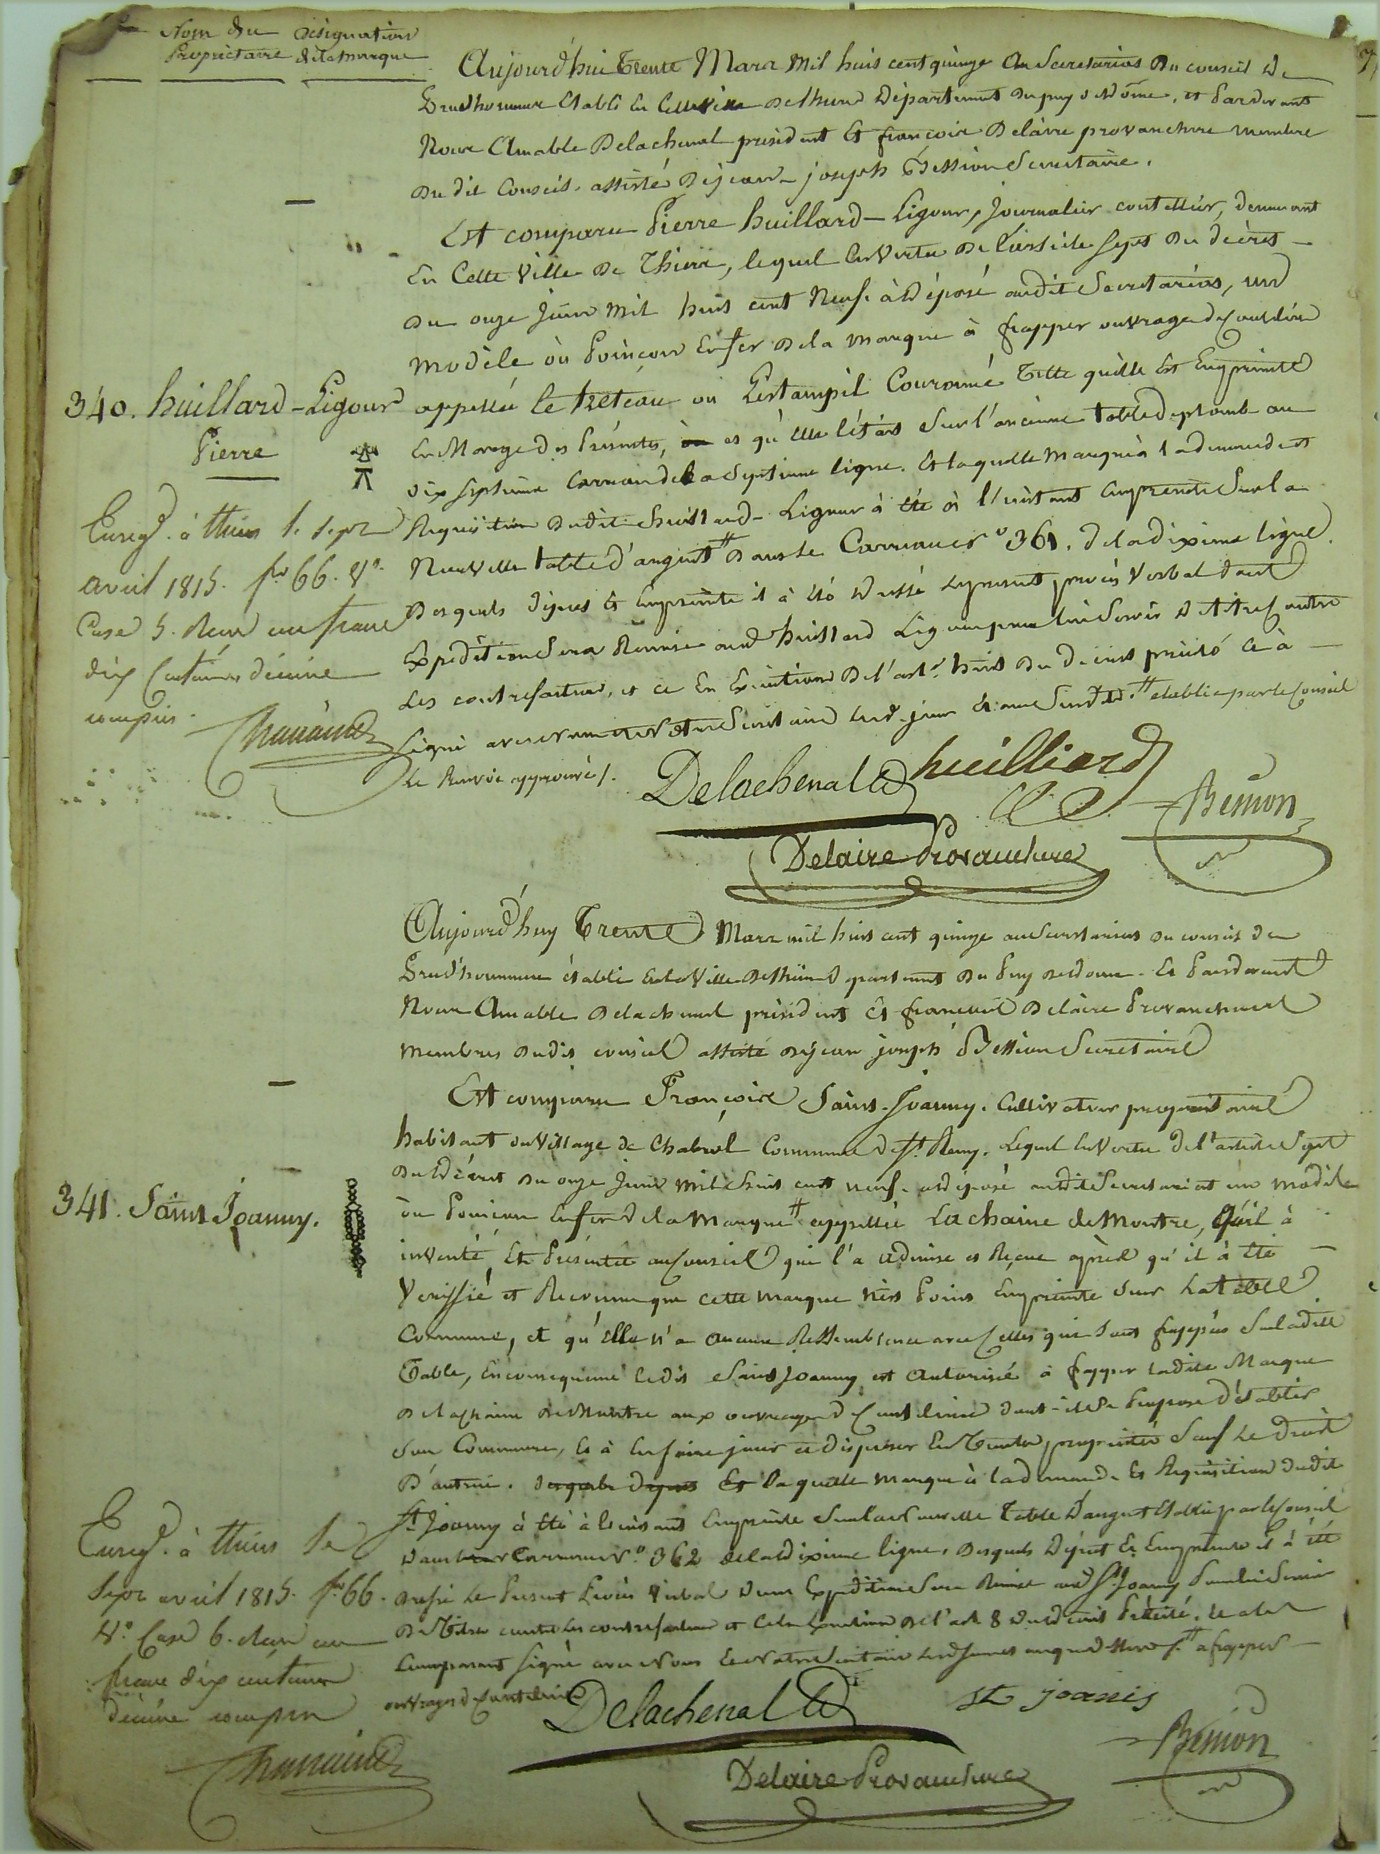 Nom du Désignation
Propriétaire de la marque
Aujourd'hui trente Mars mil huit cent quinze au Secretariat du conseil de
Prudhommes établi en cette ville de thiers Département du puy de dôme, et pardevant
Nous Amable Delachenal président et françois Delaire provanchere membre
du dit conseil, assisté de jean-joseph Bession Secretaire.
Est comparu Pierre huillard-Ligour, journalier coutellier, demeurant
en Cette ville de Thiers, lequel en vertu de l'article sept du decret
du onze juin mil huit cent neuf à déposé audit Secretariat, un
modèle ou Poinçon en fer de la marque à frapper ouvrage de Coutelerie
340. huillard-Ligour
Pierre
appellée le treteau ou L'estampil Couronné telle quelle est Empreinte
En Marge des Présentes, et qu'elle l'étoit sur l'ancienne table de plomb au
dix septieme Carreau de la Septieme ligne. Et laquelle Marque à la demande et
Requisition dudit huillard-Ligour à été à l'instant empreinte sur la
Nouvelle table d'argent # dans le Carreau n° 361. de la dixieme ligne.
Desquels dépot et Empreinte il à été dressé le present procès verbal dont
Expedition sera Remise aud huillard Ligour pour lui servir de titre contre
Les contrefacteurs, et ce En Execution de l'art. huit du decret précité Ce à
signé avec nous et notre Secretaire lesd. jour et an susdits # établie par le Conseil
le Renvoi approuvé /.
Enreg. à thiers le sept
avril 1815. f° 66. V°.
Case 5. Reçu un franc
dix centimes décime
compris.
Delachenal huilliard
Bession
Delaire Provanchere
Aujourd'huy trente Mars mil huit cent quinze au Secretariat du conseil de
Prud'hommes établi en la Ville de thiers Departement du Puy de dome. Et Pardevant
Nous Amable Delachenal président et françois Delaire Provanchere
membres dudit conseil assisté de jean joseph Bession Secretaire
Est comparu François Saint-Joanny. Cultivateur proprietaire
habitant au Village de Chabrol Commune de St. Remy. Lequel en vertu de l'article sept
du Décret du onze juin mil huit cent neuf. a déposé audit Secretariat un modèle
341. Saint Joanny.
ou Poincon en fer de la Marque # appellée la chaine de Montre, Qu'il à
inventé, Et Présenté au Conseil qui l'a admise et Reçue après qu'il à été
Veriffié et Reconnu que cette marque n'est Point Empreinte sur la table
Commune, et qu'elle n'a aucune Ressemblance avec Celles qui sont frappées sur ladite
Table, En consequence ledit Saint Joanny est Autorisé à frapper ladite Marque
de la chaine de Montre aux ouvrages de Coutelerie dont il se Propose d'établir
Son Commerce, et à En faire jouir et disposer En toute proprieté Sauf le Droit
D'autrui. Desquels depots Et Laquelle marque à la demande Et Requisition dudit
St. Joanny à été à l'instant Empreinte sur la Nouvelle Table D'argent établie par le Conseil
Dans le Carreau N.° 362 de la dixieme ligne, Desquels Dépot Et Empreinte il à été
dressé le Present Procès Verbal dont Expedition sera Remise aud St. Joanny Pour lui Servir
De Titre contre les contrefacteurs et Ce En Execution de l'art 8 du decret Précité. Le
Comparant signé avec Nous Et Notre Secretaire # a frapper
ouvrages de Coutelerie
Enreg. à thiers le
sept avril 1815. f° 66.
V°. Case 6. Reçu un
franc dix centimes
décime compris
Delachenal st joanis
Bession
Delaire Provanchere